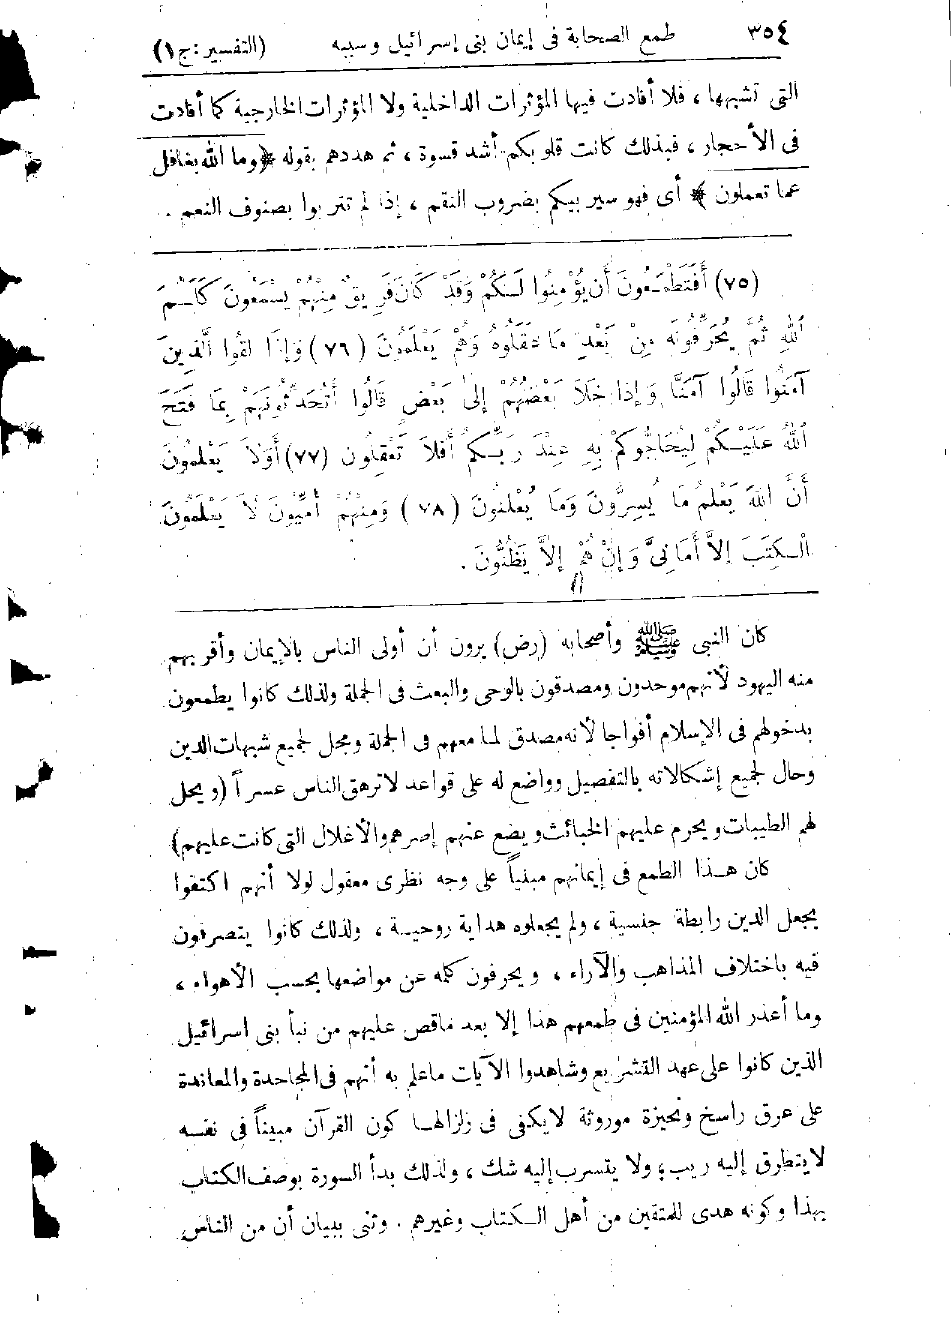 ٣٥٤ طمع الصحابة فى إيمان بنى إسرائيل وسببه (التفسير : ج ١)
التى تشبهها ، فلا أفادت فيها المؤثرات الداخلية ولا المؤثرات الخارجية كما أفادت
فى الأحجار ، فبذلك كانت قلوبكم أشد قسوة ، ثم هددهم بقوله ﴿ وما الله بغافل
عما تعملون ﴾ أى فهو سيربيكم بضروب النقم ، إذا لم تتربوا بصنوف النعم .
(٧٥) أَفَتَطْمَعُونَ أَن يُؤْمِنُوا لَكُمْ وَقَدْ كَانَ فَرِيقٌ مِنْهُمْ يَسْمَعُونَ كَلَـٰمَ
اللهِ ثُمَّ يُحَرِّفُونَهُ مِنْ بَعْدِ مَا عَقَلُوهُ وَهُمْ يَعْلَمُونَ (٧٦) وَإِذَا لَقُوا الَّذِينَ
آمَنُوا قَالُوا آمَنَّا وَإِذَا خَلَا بَعْضُهُمْ إِلَىٰ بَعْضٍ قَالُوا أَتُحَدِّثُونَهُمْ بِمَا فَتَحَ
اللهُ عَلَيْكُمْ لِيُحَاجُّوكُمْ بِهِ عِنْدَ رَبِّكُمْ أَفَلَا تَعْقِلُون (٧٧) أَوَلَا يَعْلَمُونَ
أَنَّ اللهَ يَعْلَمُ مَا يُسِرُّونَ وَمَا يُعْلِنُونَ (٧٨) وَمِنْهُمْ أُمِّيُّونَ لَا يَعْلَمُونَ
الْكِتَبَ إِلَّا أَمَانِيَّ وَإِنْ هُمْ إِلَّا يَظُنُّونَ .
كان النبى ﷺ وأصحابه (رض) يرون أن أولى الناس بالإيمان وأقربهم
منه اليهود لأنهم موحدون ومصدقون بالوحى والبعث فى الجملة ولذلك كانوا يطمعون
بدخولهم فى الإسلام أفواجا لأنه مصدق لما معهم فى الجملة ومجل لجميع شبهات الدين
وحال لجميع إشكالاته بالتفصيل وواضع له على قواعد لا ترهق الناس عسراً (ويحل
لهم الطيبات ويحرم عليهم الخبائث ويضع عنهم إصرهم والأغلال التى كانت عليهم)
كان هذا الطمع فى إيمانهم مبنياً على وجه نظرى معقول لولا أنهم اكتفوا
بجعل الدين رابطة جنسية ، ولم يجعلوه هداية روحية ، ولذلك كانوا يتصرفون
فيه باختلاف المذاهب والآراء ، ويحرفون كلمه عن مواضعها بحسب الأهواء ،
وما أعذر الله المؤمنين فى طمعهم هذا إلا بعد ماقص عليهم من نبأ بنى اسرائيل
الذين كانوا على عهد التشريع وشاهدوا الآيات ماعلم به أنهم فى المجاحدة والمعاندة
على عرق راسخ ونحيزة موروثة لا يكفى فى زلزالها كون القرآن مبيناً فى نفسه
لا يتطرق إليه ريب ، ولا يتسرب إليه شك ، ولذلك بدأ السورة بوصف الكتاب
بهذا وكونه هدى للمتقين من أهل الكتاب وغيرهم . وثنى ببيان أن من الناس